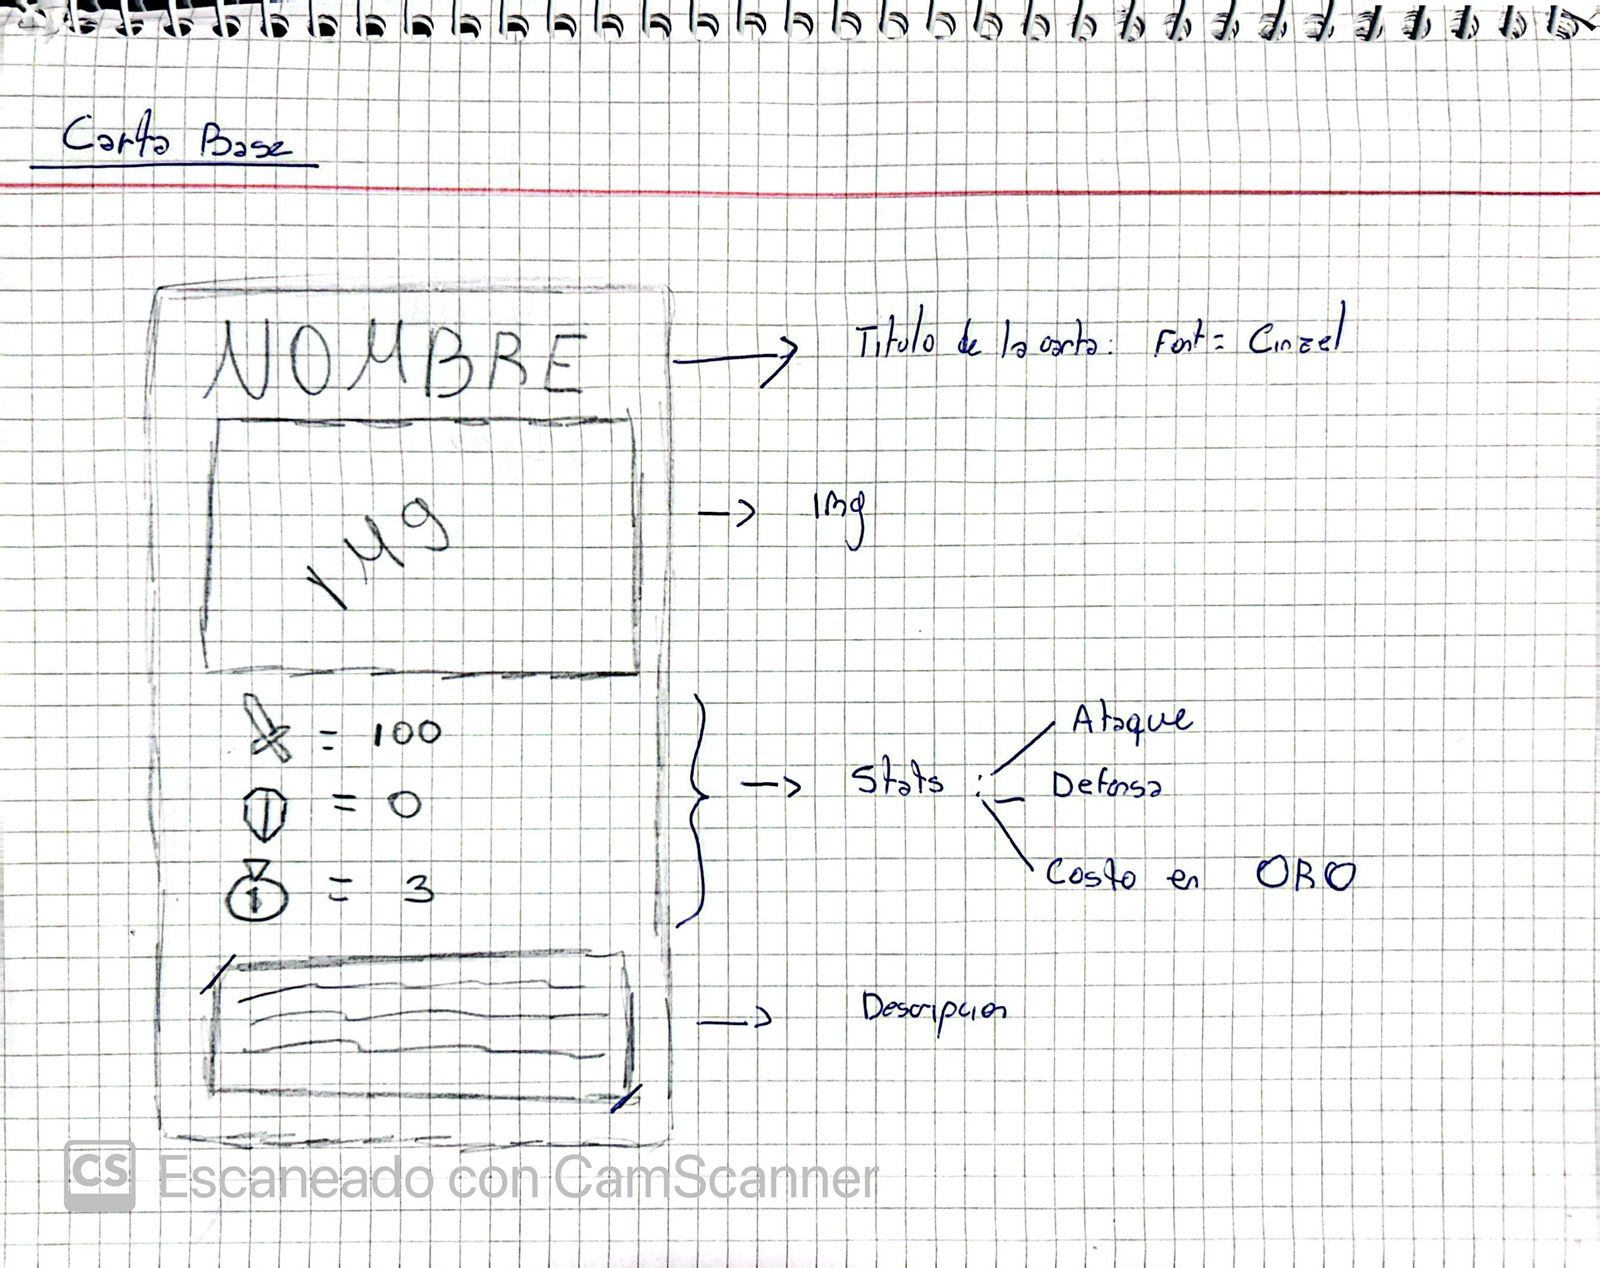 Carta Base
NOMBRE
Titulo de la carta: Font = Cinzel
IMg
IMg
= 100
= 0
1 = 3
Stats :
Ataque
Defensa
Costo en ORO
Descripcion
CS Escaneado con CamScanner